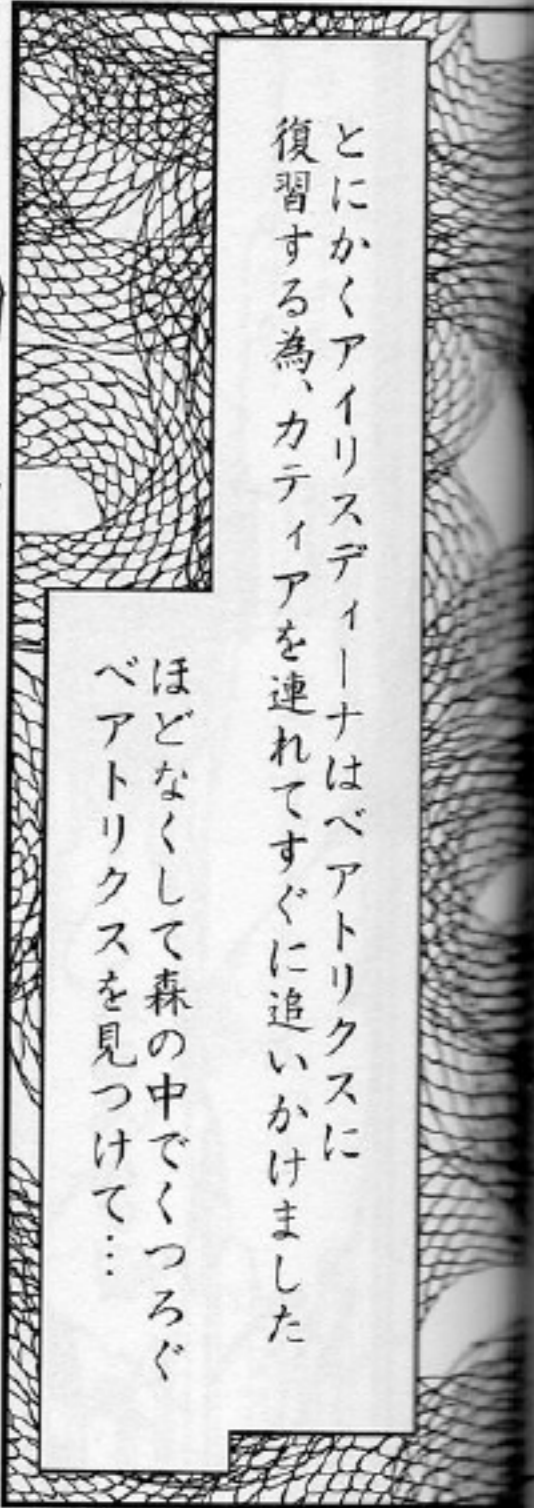 とにかくアイリスディーナはベアトリクスに
復習する為、カティアを連れてすぐに追いかけました
ほどなくして森の中でくつろぐ
ベアトリクスを見つけて…